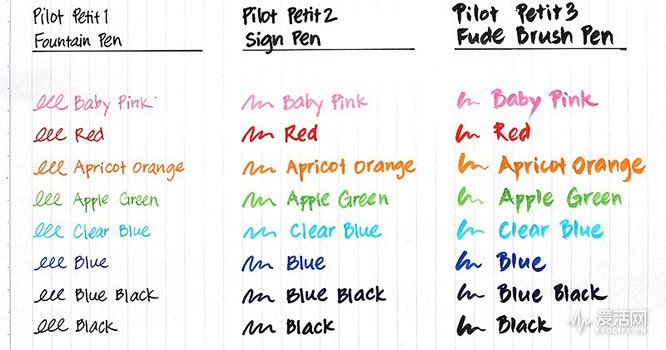 Pilot Petit1
Fountain Pen
Baby Pink
Red
Apricot Orange
Apple Green
Clear Blue
Blue
Blue Black
Black
Pilot Petit2
Sign Pen
Baby Pink
Red
Apricot Orange
Apple Green
Clear Blue
Blue
Blue Black
Black
Pilot Petit3
Fude Brush Pen
Baby Pink
Red
Apricot Orange
Apple Green
Clear Blue
Blue
Blue Black
Black
爱活网
EVOLIFE.CN